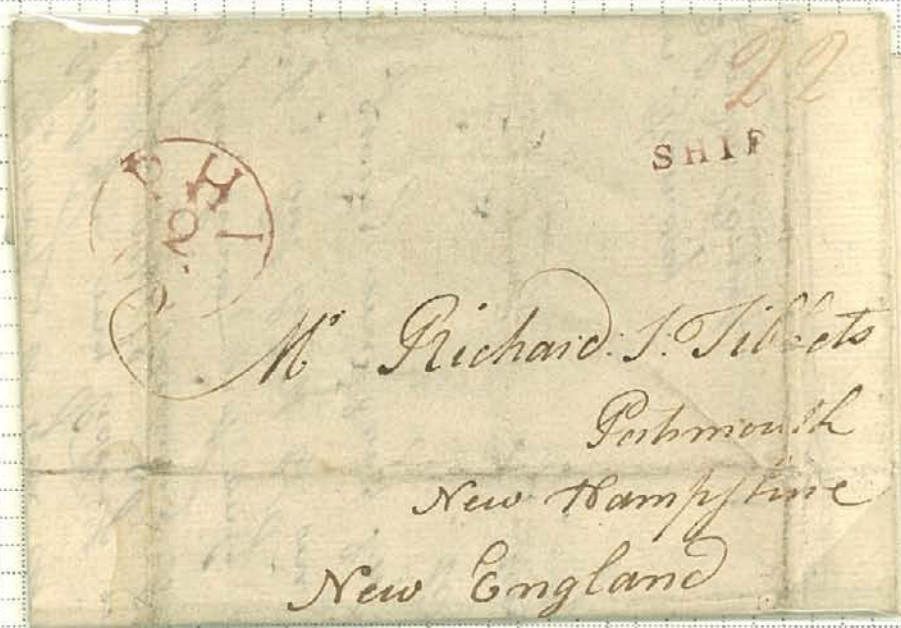 22
SHIP
PHI
2
Mr Richard: S: Tibbets
Portsmouth
New Hampshire
New England